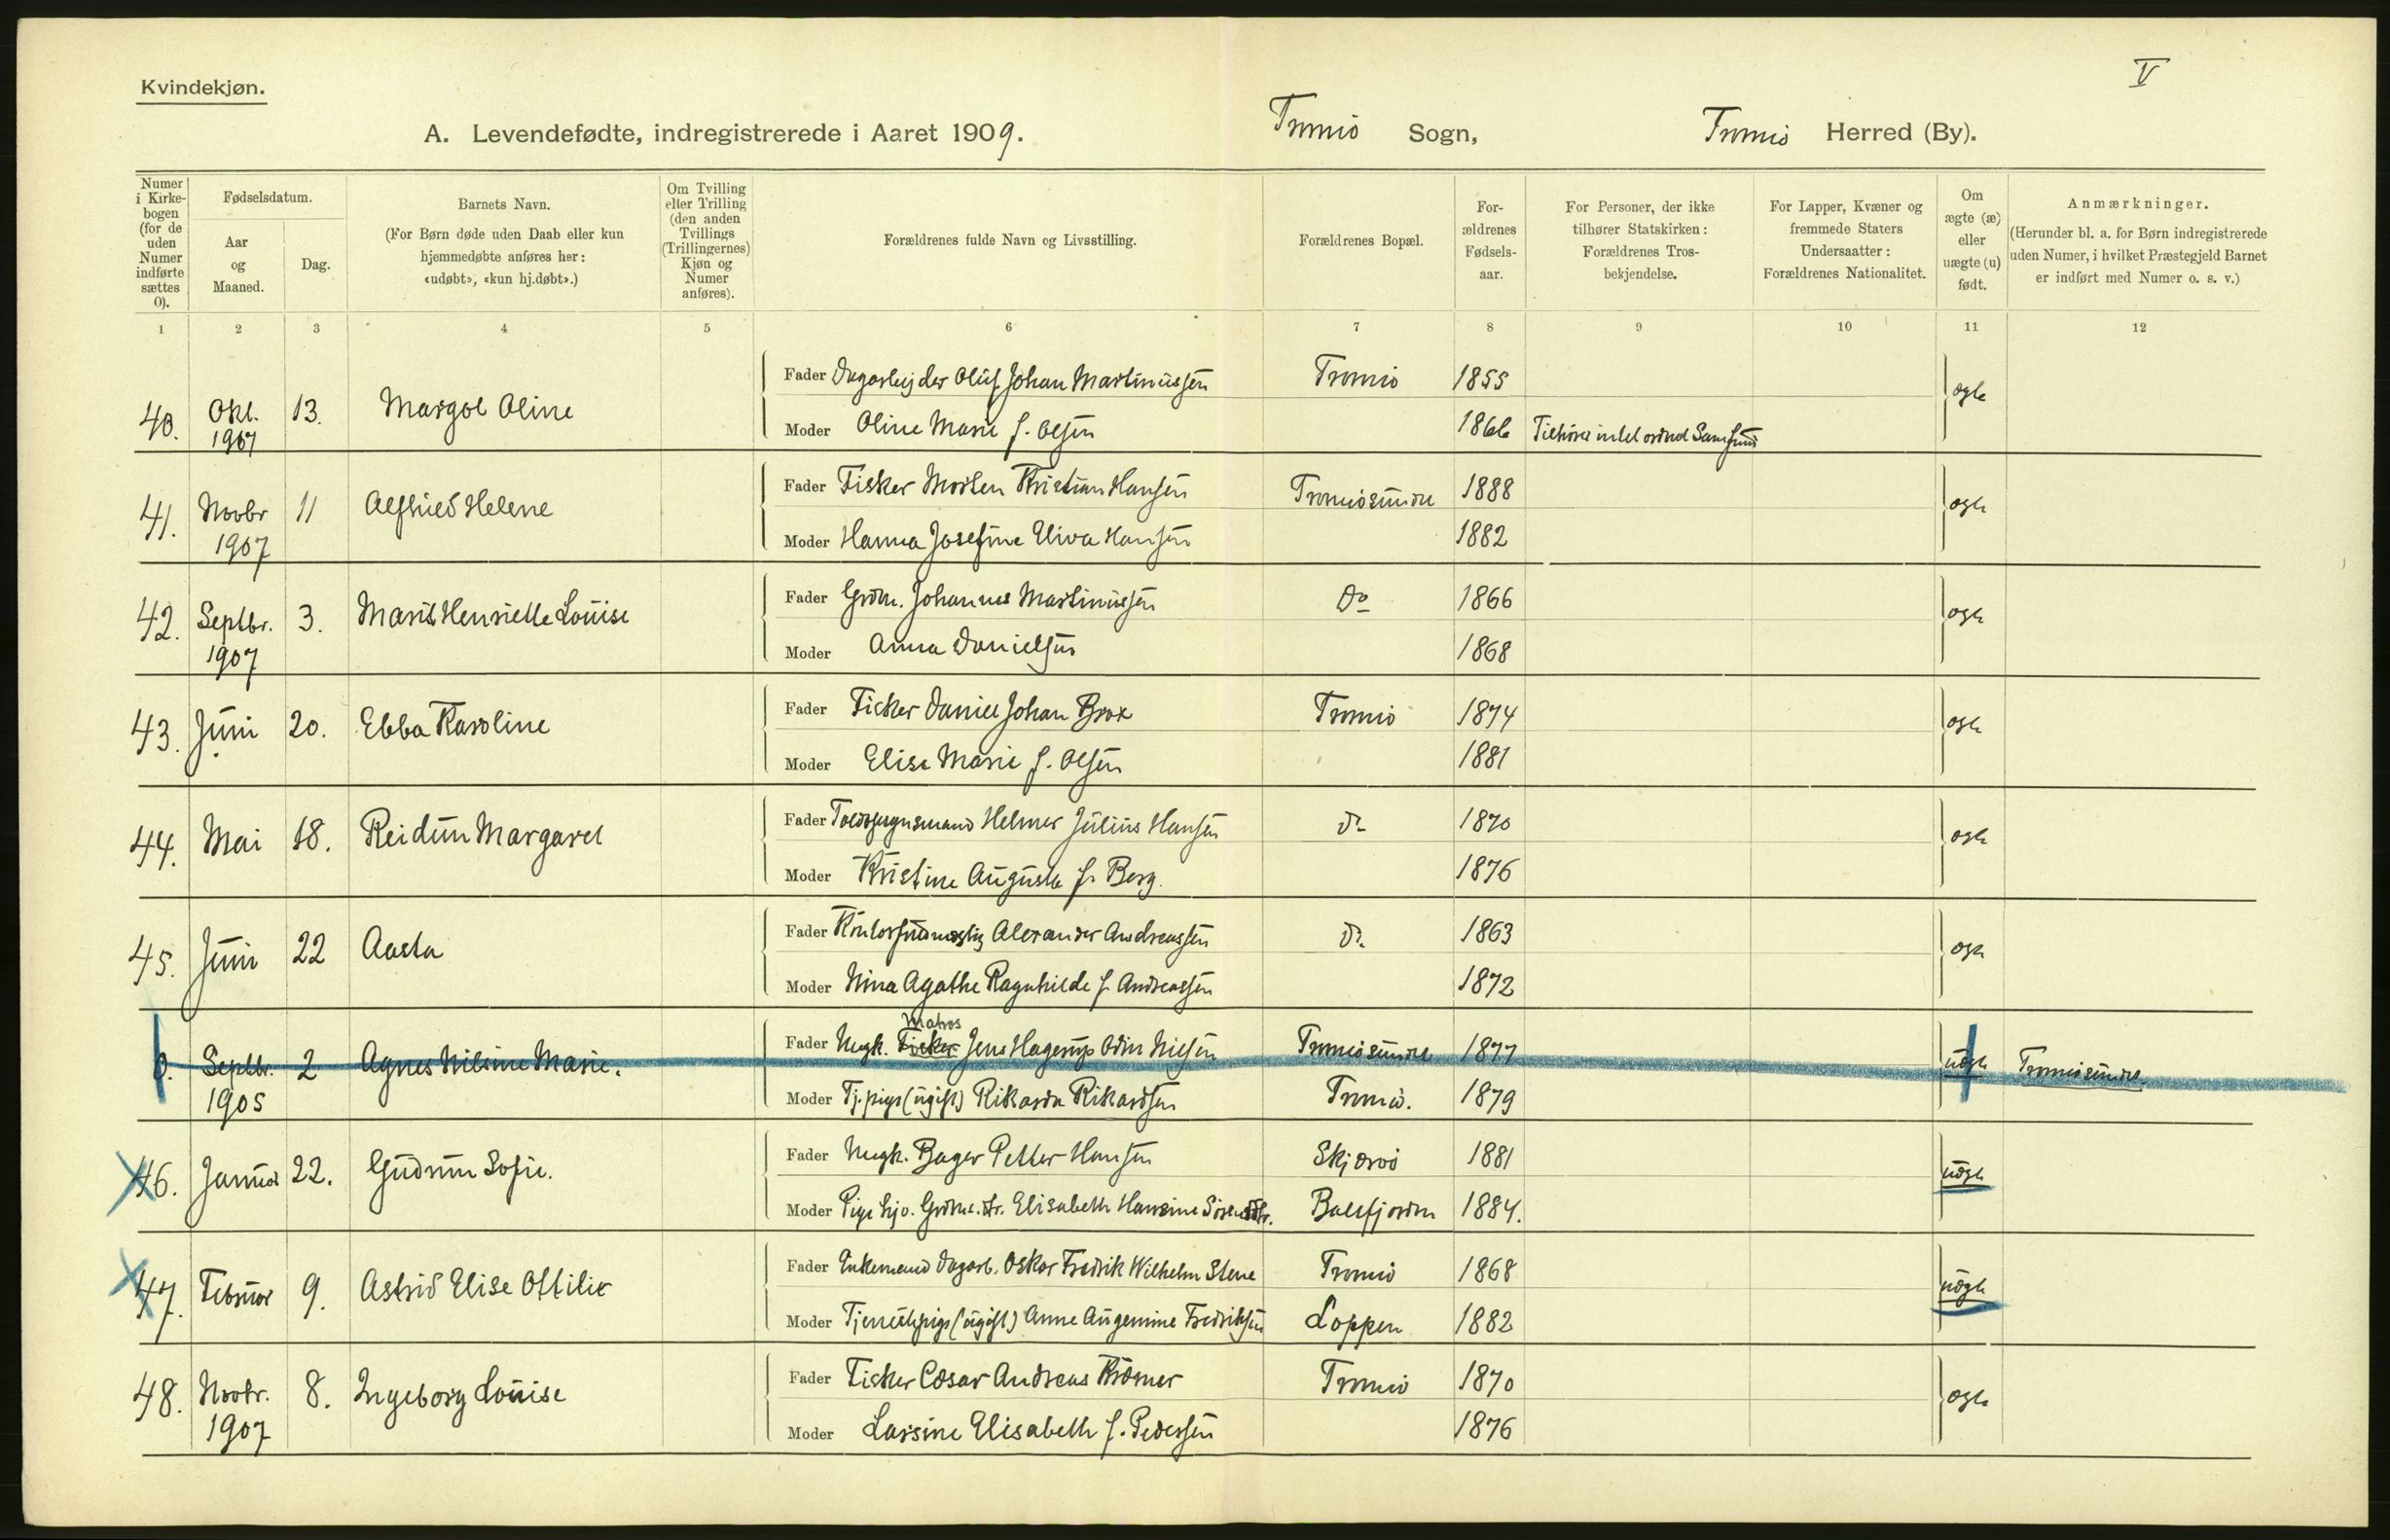 V
Kvindekjøn.
A. Levendefødte, indregistrerede i Aaret 1909. Tromsø Sogn, Tromsø Herred (By).
Numer i Kirke-bogen (for de uden Numer indførte sættes 0).
Fødselsdatum.
Aar og Maaned.
Dag.
Barnets Navn.
(For Børn døde uden Daab eller kun hjemmedøbte anføres her: «udøbt», «kun hj.døbt».)
Om Tvilling eller Trilling (den anden Tvillings (Trillingernes) Kjøn og Numer anføres).
Forældrenes fulde Navn og Livsstilling.
Forældrenes Bopæl.
For-ældrenes Fødsels-aar.
For Personer, der ikke tilhører Statskirken: Forældrenes Tros-bekjendelse.
For Lapper, Kvæner og fremmede Staters Undersaatter: Forældrenes Nationalitet.
Om ægte (æ) eller uægte (u) født.
Anmærkninger.
(Herunder bl. a. for Børn indregistrerede uden Numer, i hvilket Præstegjeld Barnet er indført med Numer o. s. v.)
1 2 3 4 5 6 7 8 9 10 11 12
40. Okt. 1907 13. Margot Oline
Fader Dagarbejder Oluf Johan Martinussen Tromsø 1855 ægte
Moder Oline Marie f. Olsen 1866 Tilhører intet ordnet Samfund
41. Novbr 1907 11 Alfhild Helene
Fader Fisker Morten Kristian Hansen Tromsøsundet 1888 ægte
Moder Hanna Josefine Eliva Hansen 1882
42. Septbr. 1907 3. Marit Henriette Louise
Fader Grdm. Johannes Martinussen Do 1866 ægte
Moder Anna Danielsen 1868
43. Juni 20. Ebba Karoline
Fader Fisker Daniel Johan Brox Tromsø 1874 ægte
Moder Elise Marie f. Olsen 1881
44. Mai 18. Reidun Margaret
Fader Toldopsynsmand Helmer Julius Hansen Do 1870 ægte
Moder Kristine Augusta f. Berg. 1876
45. Juni 22 Aasta
Fader Kontorfuldmægtig Alexander Andreassen Do 1863 ægte
Moder Nina Agathe Ragnhilde f. Andreassen 1872
0. Septbr. 1905 2 Agnes Nilsine Marie.
Fader Ungk. Fisker Matros Jens Hagerup Odin Nilsen Tromsøsundet 1877 uægte Tromsøsundet
Moder Tj.pige (ugift) Rikarda Rikardsen Tromsø. 1879
46. Januar 22. Gudrun Sofie.
Fader Ungk. Bager Petter Hansen Skjærvø 1881 uægte
Moder Pige hjv. Grdm.s.dr. Elisabeth Hansine Sørensdtr. Balsfjorden 1884.
47. Februar 9. Astrid Elise Ottilie
Fader Enkemand Dagarb. Oskar Fredrik Wilhelm Stene Tromsø 1868 uægte
Moder Tjenestepige (ugift) Anne Augemine Fredriksen Loppen 1882
48. Novbr. 1907 8. Ingeborg Louise
Fader Fisker Cæsar Andreas Kræmer Tromsø 1870 ægte
Moder Larsine Elisabeth f. Pedersen 1876